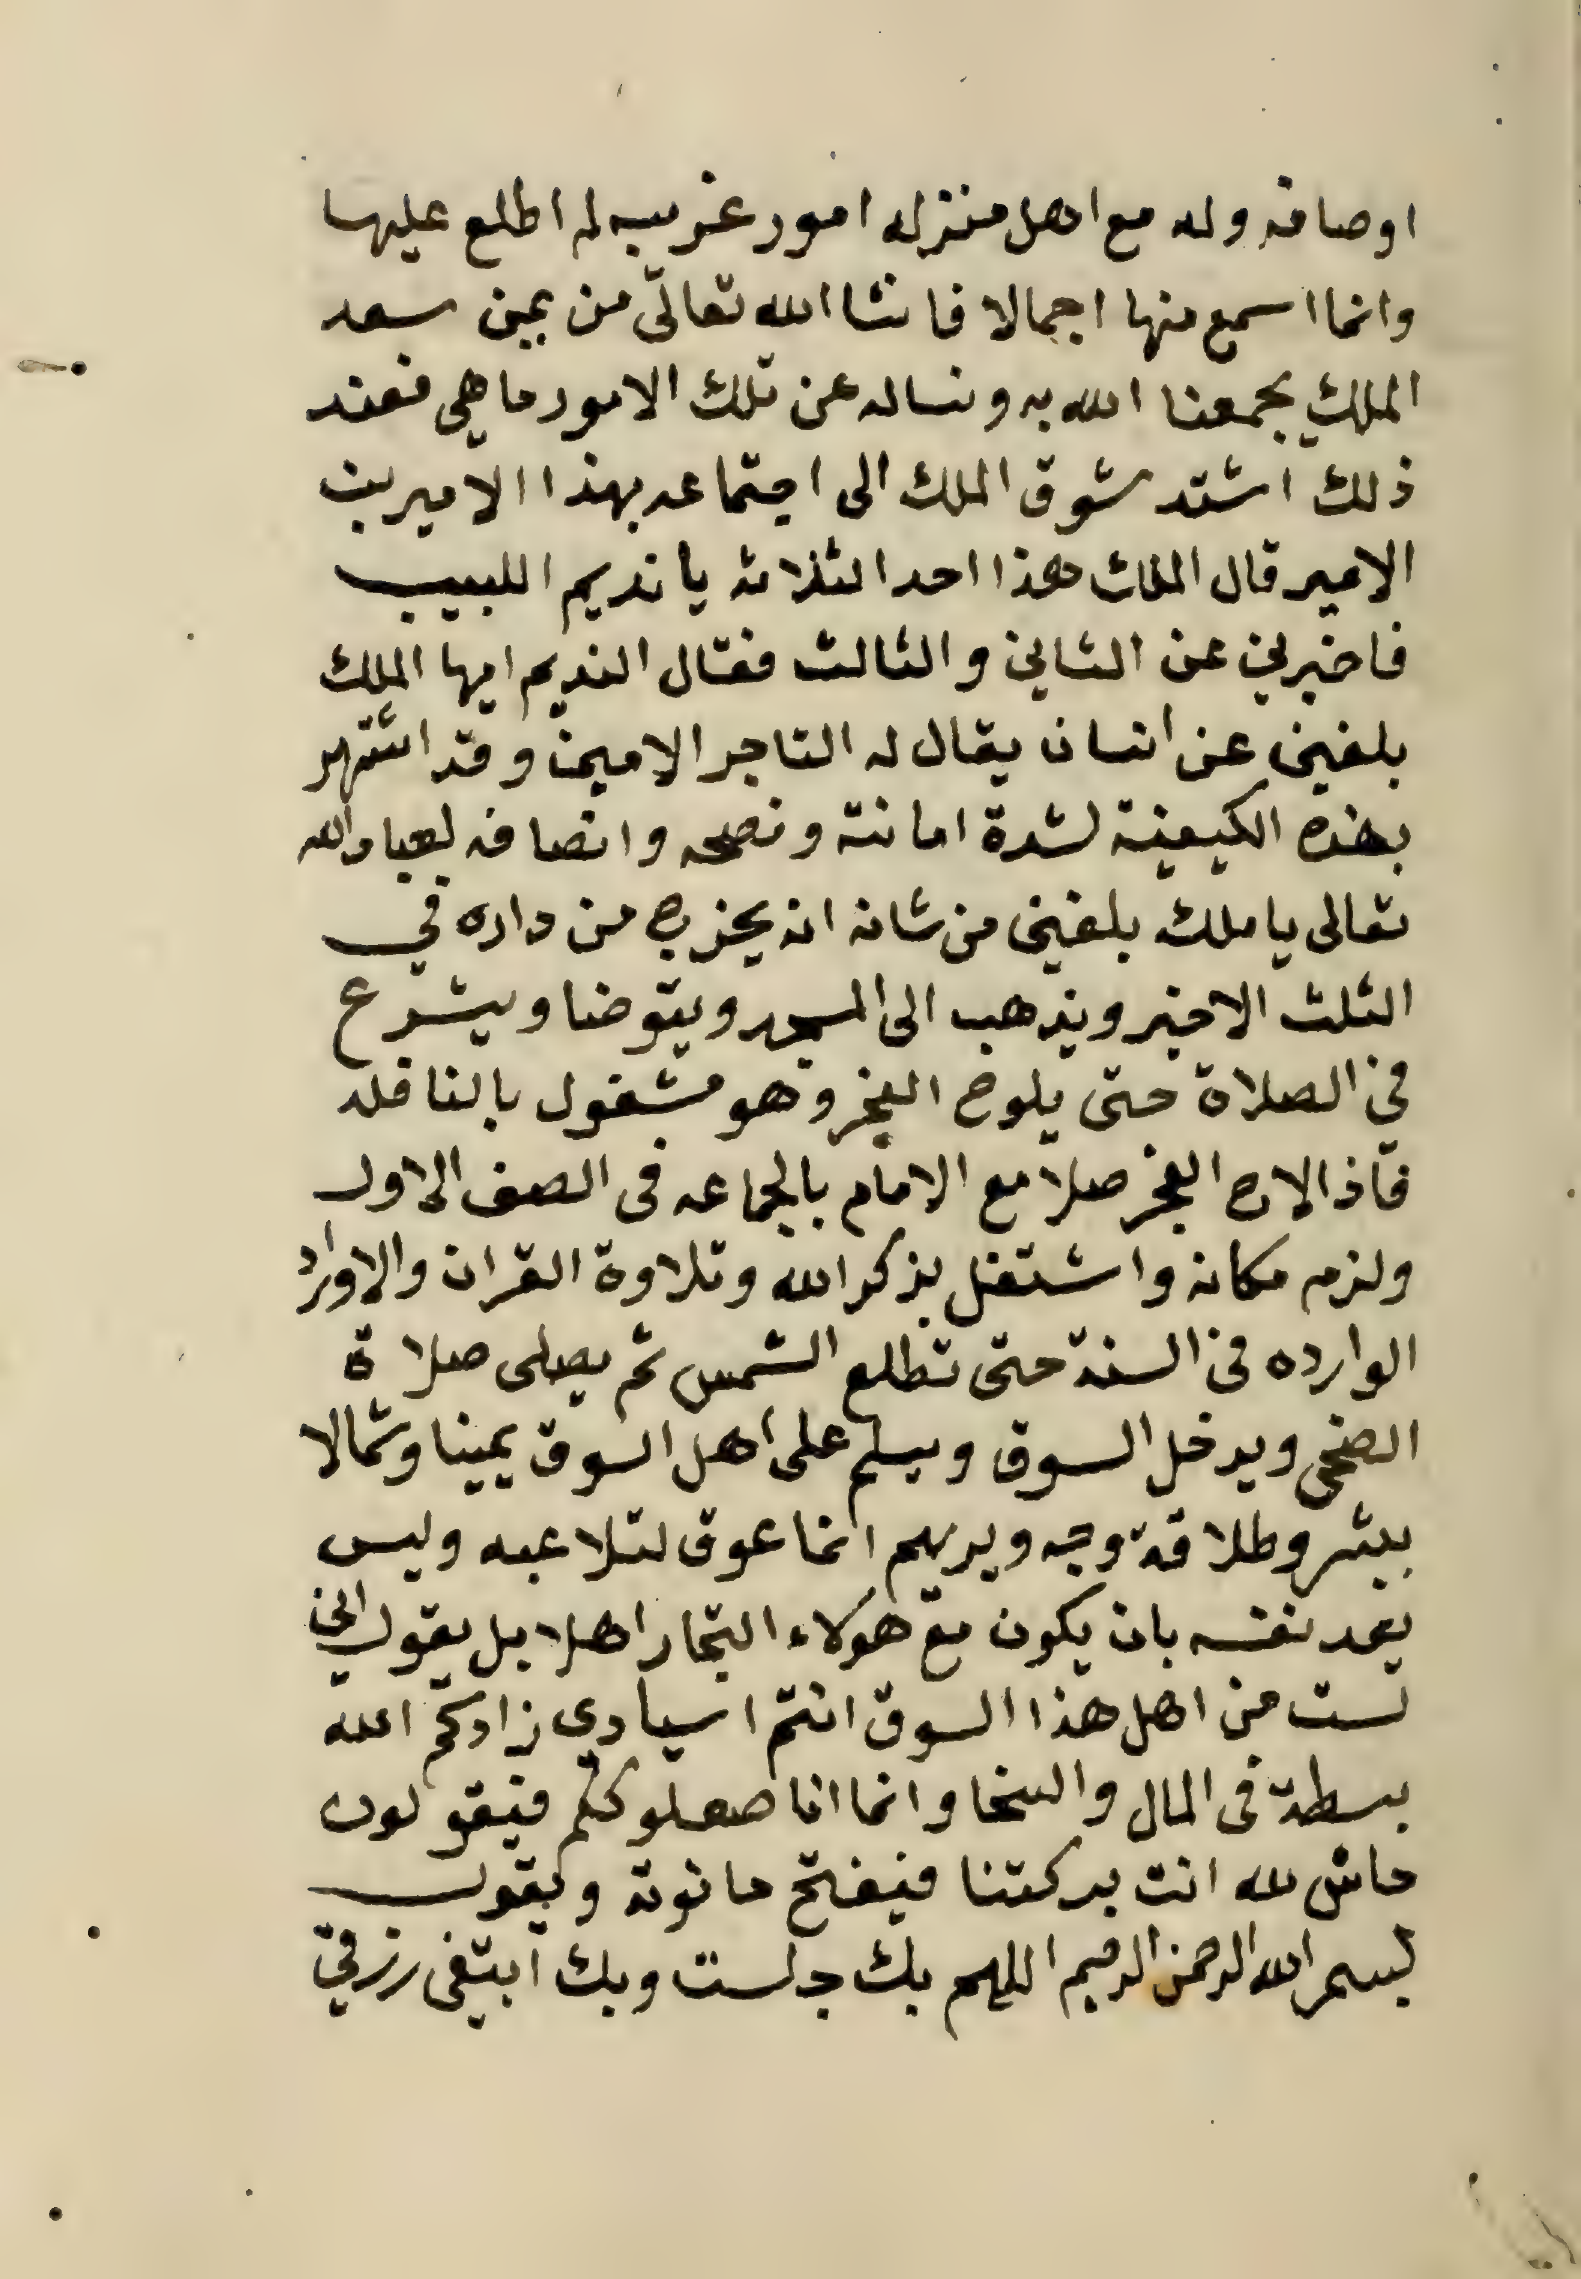 اوصافه وله مع اهل منزله امور غريبه لم اطلع عليها
وانما اسمع منها اجمالا فان شا الله تعالى من يمن سعد
الملك يجمعنا الله به ونساله عن تلك الامور ما هي فعند
ذلك اشتد شوق الملك الى اجتماعه بهذا الامير بن
الامير قال الملك هذا احد الثلاثه يا نديم اللبيب
فاخبرني عن الثاني والثالث فقال النديم ايها الملك
بلغني عن انسان يقال له التاجر الامين وقد اشتهر
بهذه الكيفية لشدة امانته ونصحه وانصافه لعباد الله
تعالى يا ملك بلغني من شانه انه يخرج من داره في
الثلث الاخير ويذهب الى المسجد ويتوضا ويشرع
في الصلاة حتى يلوح الفجر وهو مشغول بالنافله
فاذا لاح الفجر صلا مع الامام بالجماعه في الصف الاول
ولزم مكانه واشتغل بذكر الله وتلاوة القران والاوراد
الوارده في السنة حتى تطلع الشمس ثم يصلى صلاة
الضحى ويدخل السوق ويسلم على اهل السوق يمينا وشمالا
ببشر وطلاقة وجه ويريهم انما عوق لتلاعبه وليس
يعد نفسه بان يكون مع هولاء التجار اهلا بل يقول اني
لست من اهل هذا السوق انتم اسيادي زادكم الله
بسطة في المال والسخا وانما انا صعلوككم فيقولون
حاش لله انت بركتنا فيفتح حانوته ويقول
بسم الله الرحمن الرحيم اللهم بك جلست وبك ابتغى رزقي